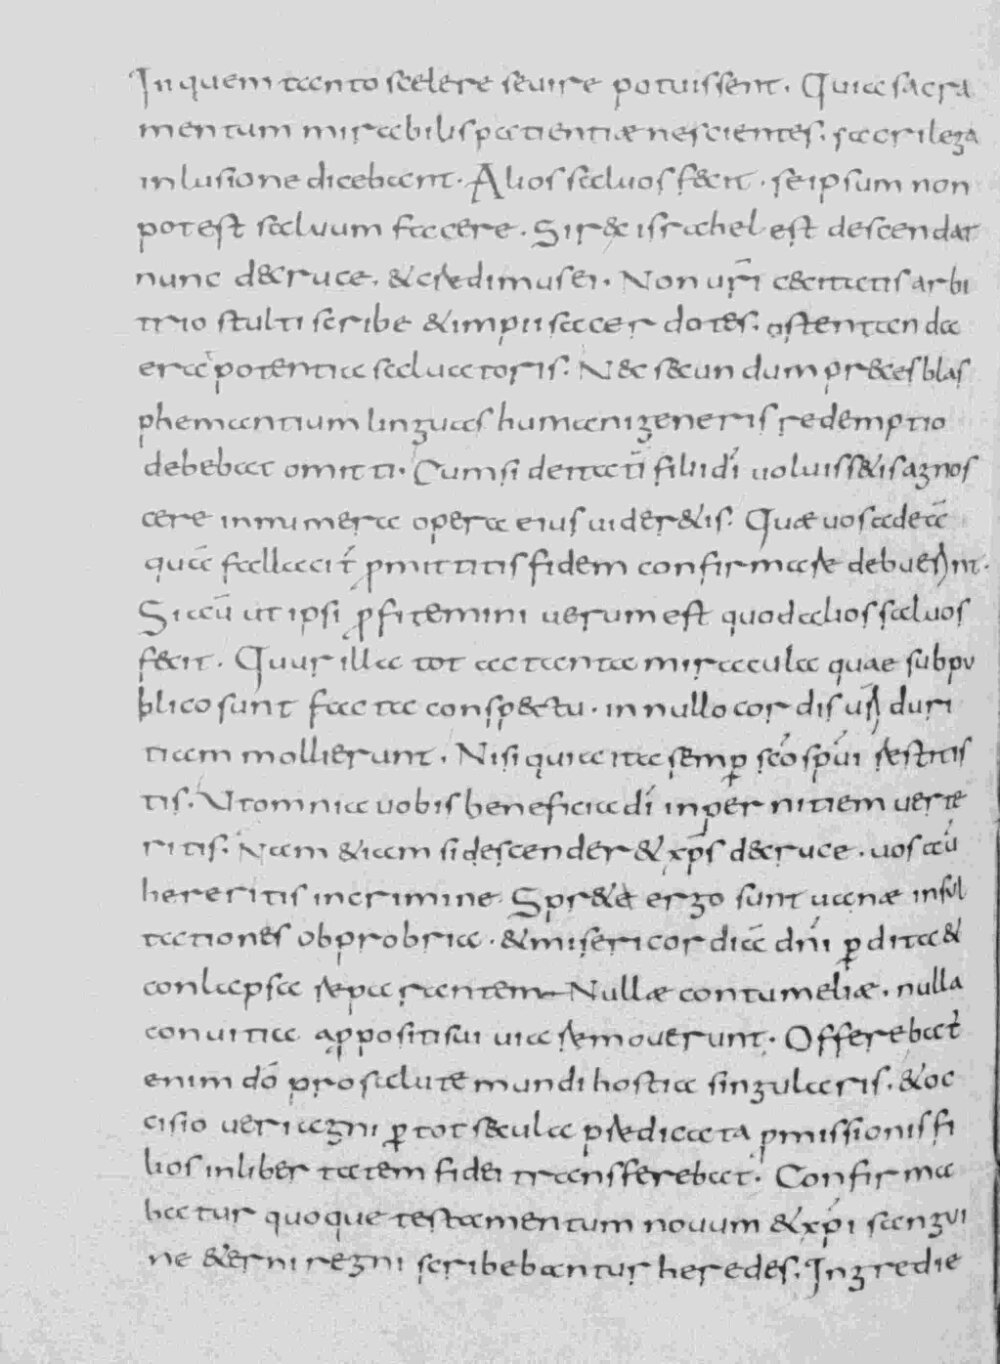 In quem tanto scelere sevire potuissent. Quia sacra
mentum mirabilis patientiæ nescientes. sacrilega
inlusione dicebant. Alios salvos fecit. seipsum non
potest salvum facere. Si r&x israhel est descendat
nunc de cruce. & credimus ei. Non urī cecitatis arbi
trio stulti scribe & impii sacerdotes. ostentanda
erat potentia salvatoris. Nec secundum praeces blas
phemantium linguas humani generis redemptio
debebat omitti. Cum si deitatē filii dī uoluiss&is agnos
cere innumera opera eius uider&is. Quæ uos ad eā
quā fallacit̄ ꝓmittitis fidem confirmare debuerant.
Si aū ut ipsi ꝓfitemini uerum est quod alios saluos
fecit. Quur illa tot ac tanta miracula quae sub pu
blico sunt facta conspectu. in nullo cordis uri duri
tiam mollierunt. Nisi quia ita semꝑ scō spūi restitis
tis. Ut omnia uobis beneficia dī in perniciem uerte
ritis. Nam & iam si descender& xp̄s de cruce. uos aū
hereritis in crimine. Spr&ę ergo sunt uanæ insul
tationes obprobria. & misericordiā dn̄i ꝑdita &
conlapsa reparantem Nullæ contumeliæ. nulla
conuitia appositi sui uia remouerunt. Offerebat
enim dō pro salute mundi hostia singularis. & oc
cisio ueri agni ꝑ tot sęcula prędicata ꝓmissionis fi
lios in libertatem fidei transferebat. Confirma
batur quoque testamentum nouum & xp̄i sangui
ne &erni regni scribebantur heredes. Ingredie